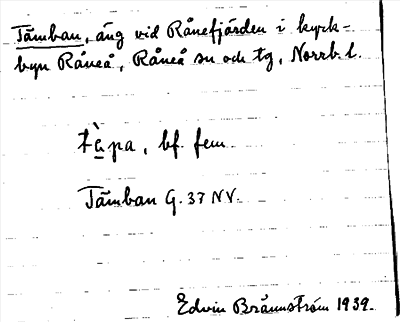 Tämban, äng vid Rånefjärden i kyrk-
byn Råneå, Råneå sn och tg, Norrb. l.
bf. fem
Tämban G. 37 NV.
Edvin Brännström 1939.